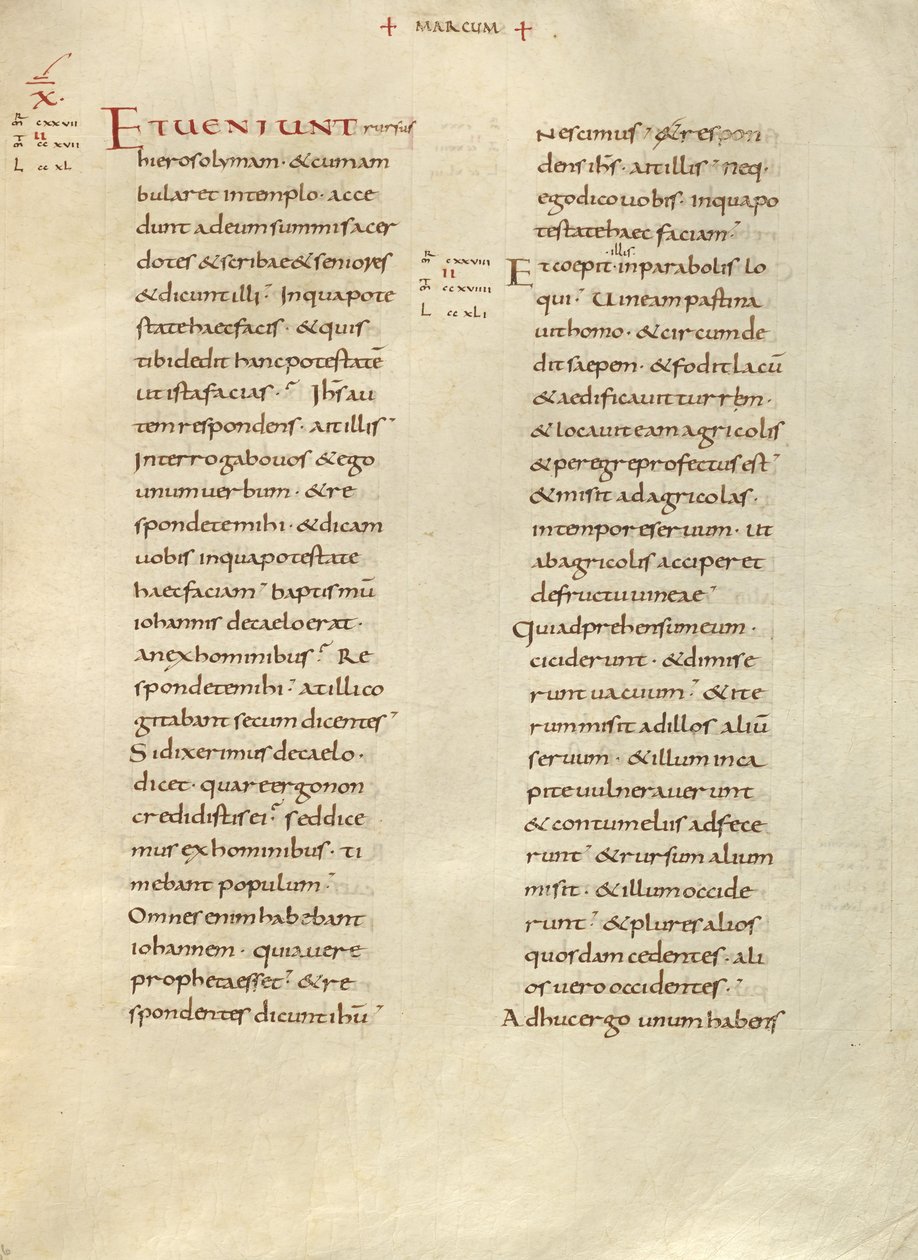 + MARCUM +
X.
MR CXXVII
MT II CCXVII
L CCXL
ETUENIUNT rursus
hierosolymam · &cumam
bularet intemplo · acce
dunt adeum summisacer
dotes &scribae&seniores
&dicuntilli Inquapote
statehaecfacis · &quis
tibidedit hancpotestatē
utistafacias · Ihs̄au
temrespondens · aitillis
Interrogabouos &ego
unumuerbum · &re
spondetemihi · &dicam
uobis inquapotestate
haecfaciam baptismū
iohannis decaeloerat ·
anexhominibus Re
spondetemihi atillico
gitabant secum dicentes
Sidixerimus decaelo ·
dicet · quareergonon
credidistisei seddice
mus exhominibus · ti
mebant populum
Omnesenimhabebant
iohannem · quiauere
prophetaesset &re
spondentes dicuntihū
Nescimus &respon
dens ihs̄ · aitillis neq·
egodicouobis · inquapo
testatehaec faciam
MR CXXVIII
MT II CCXVIIII
L CCXLI
·illis·
Etcoepit·inparabolis lo
qui Uineampastina
uithomo · &circumde
ditsaepem · &foditlacū
&aedificauitturrem ·
&locauiteamagricolis
&peregreprofectusest
&misit adagricolas ·
intemporeseruum · ut
abagricolis acciperet
defructuuineae
Quiadprehensumeum ·
ciciderunt · &dimise
runtuacuum &ite
rummisit adillos aliū
seruum · &illum inca
piteuulnerauerunt
&contumeliisadfece
runt &rursumalium
misit · &illumoccide
runt &pluresalios
quosdam cedentes · ali
osuerooccidentes ·
Adhucergo unumhabens